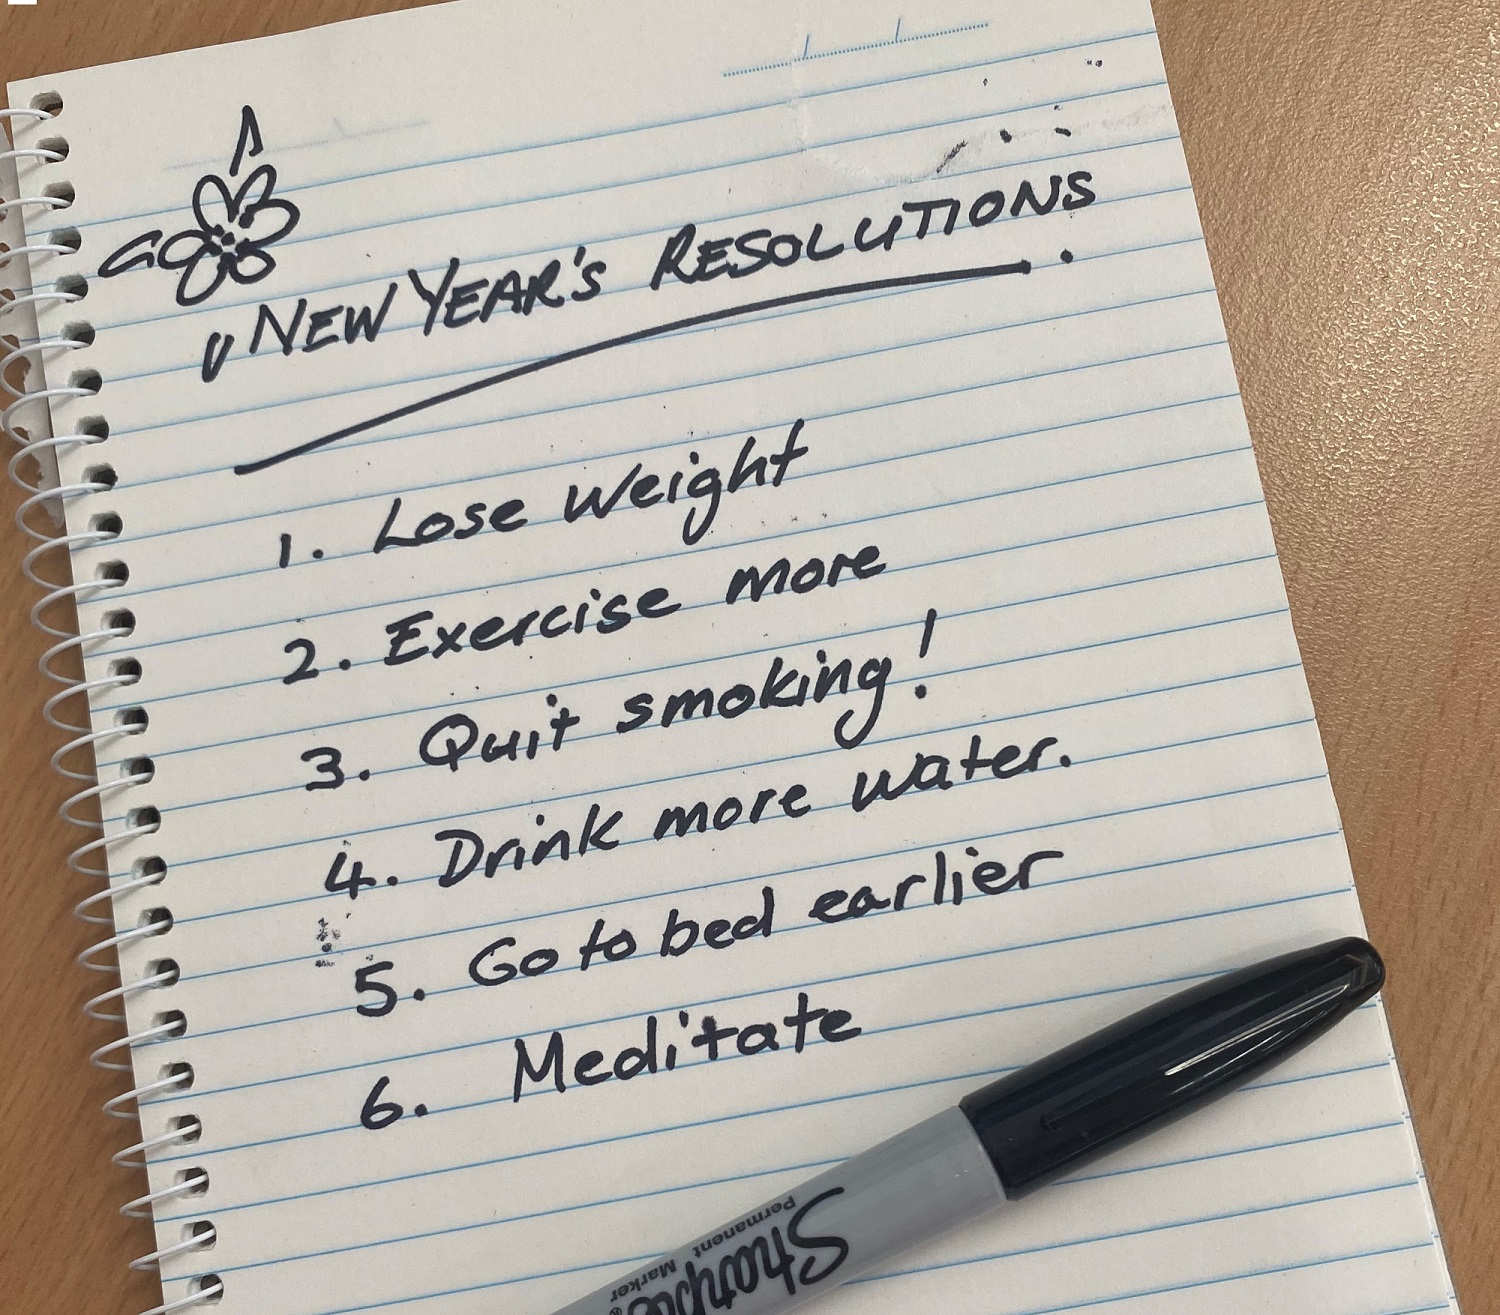 NEW YEAR'S RESOLUTIONS
1. Lose weight
2. Exercise more
3. Quit smoking!
4. Drink more water.
5. Go to bed earlier
6. Meditate
Sharpie®
Permanent Marker